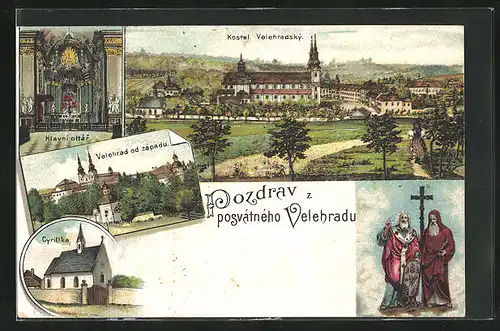 Kostel Velehradský.
Hlavní oltář
Velehrad od západu.
Pozdrav z
posvátného Velehradu
Cyrillka